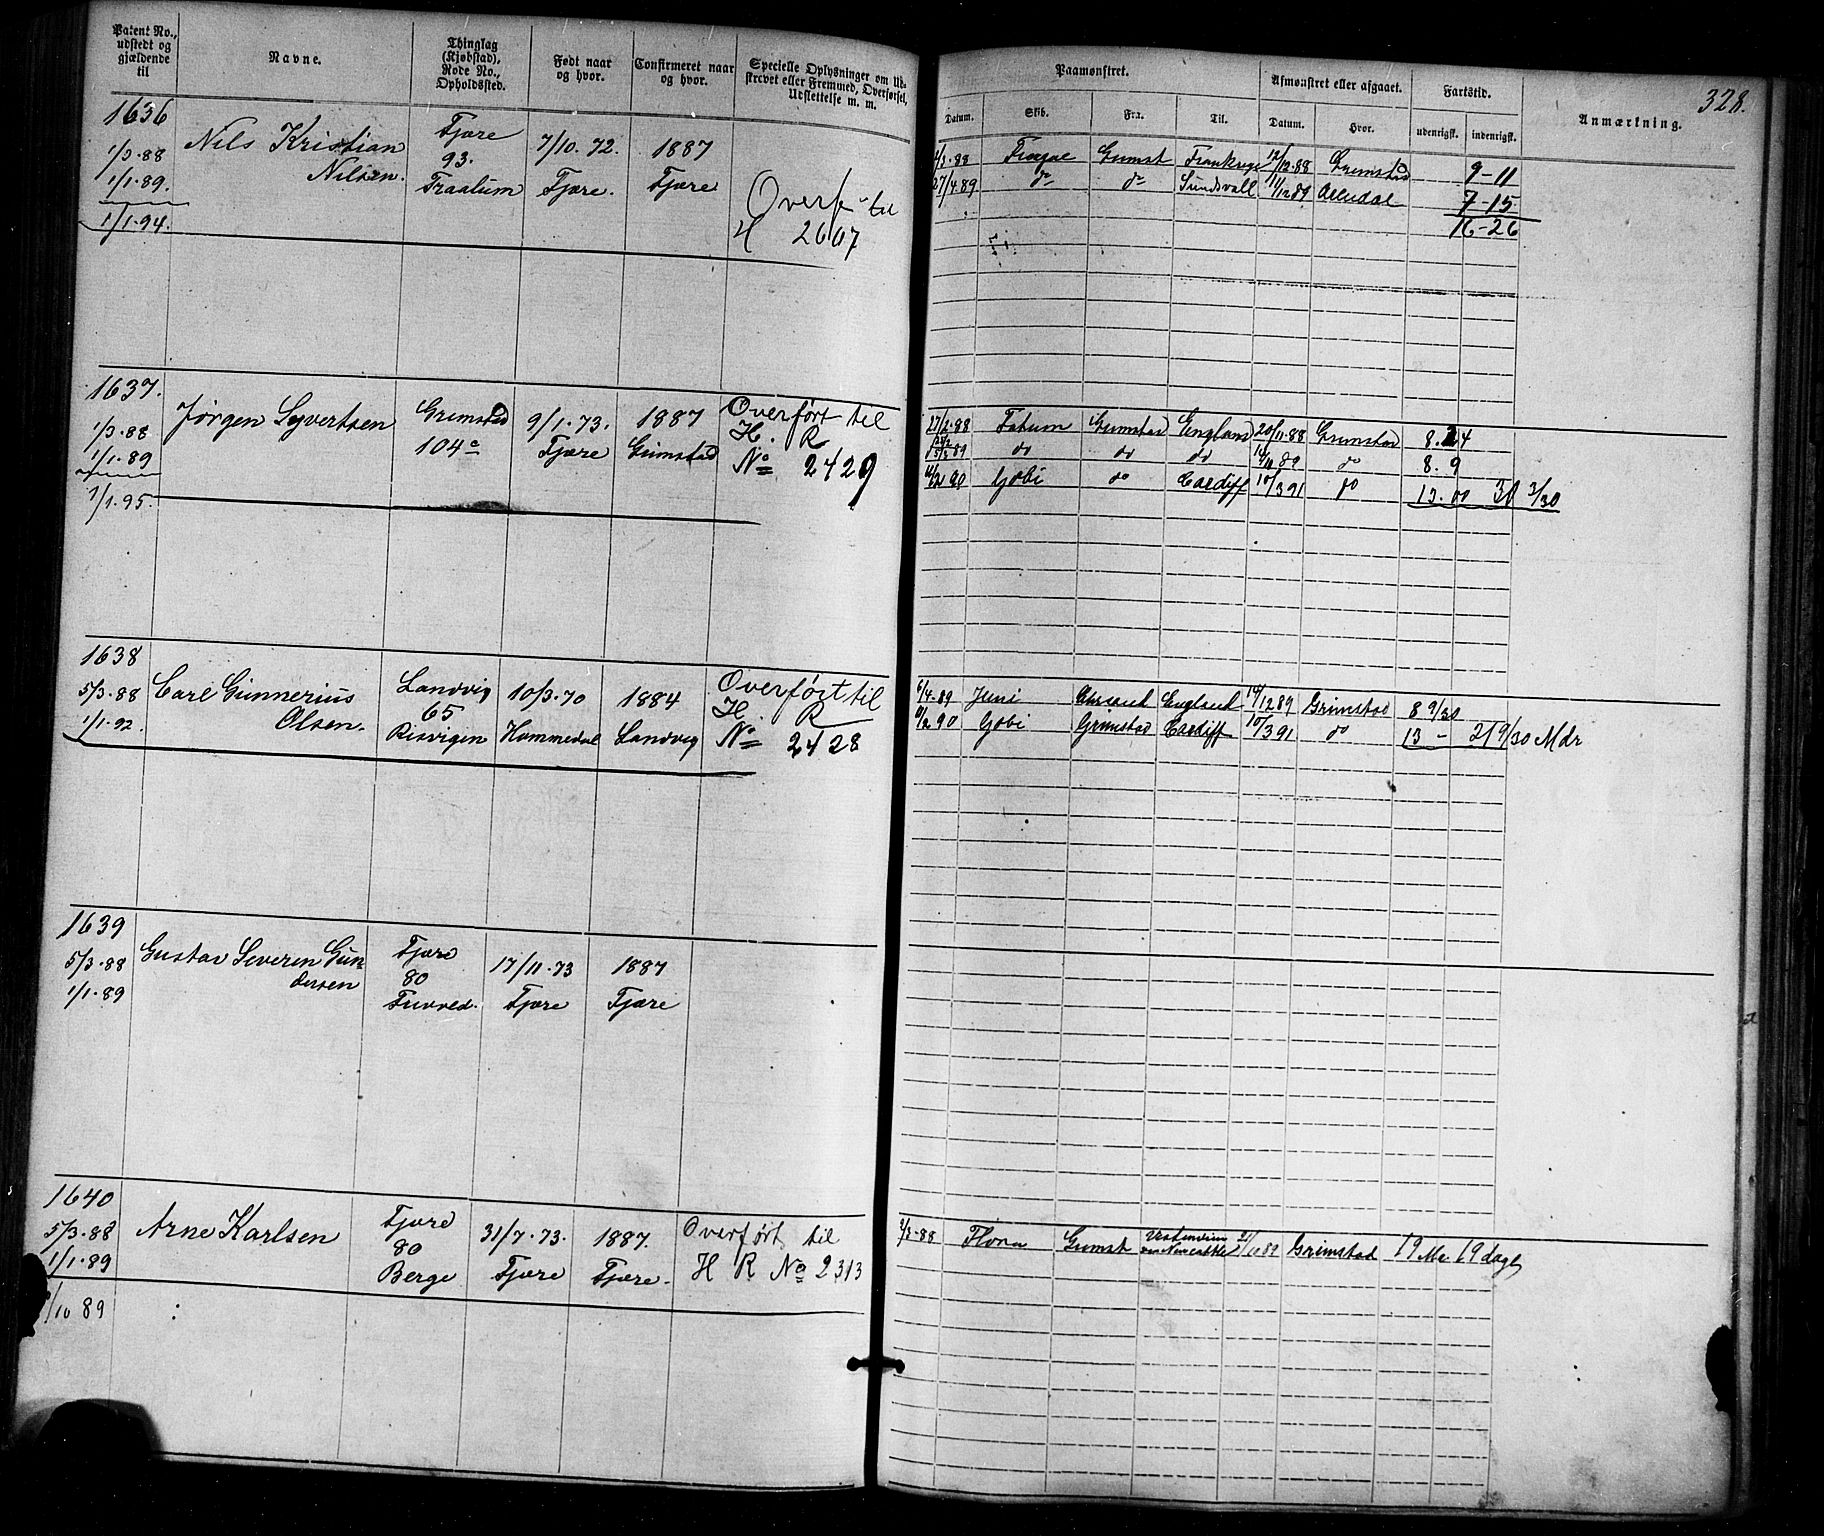 Patent No., udstedt og gjældende til
Navne.
Thinglag (Kjøbstad), Rode No., Opholdssted.
Født naar og hvor.
Confirmeret naar og hvor.
Specielle Oplysninger om Ud-
skrevet eller Fremmed, Overførsel,
Udslettelse m. m.
Paamønstret.
Afmønstret eller afgaaet.
Fartstid.
328.
Datum.
Skib.
Fra.
Til.
Datum.
Hvor.
udenrigsk.
indenrigsk.
Anmærkning.
1636
1/3.88
1/1.89.
1/1.94.
Nils Kristian
Nilsen.
Fjære
93.
Traalum
7/10.72.
Fjære.
1887
Fjære
Overf. til
H 2607
4/3.88 Gimst Frankrige 12/12.88 Grimstad 9-11
27/4.89 do do Sundsvall 11/12 89 Arendal 7-15
16-26
1637.
1/3.88
1/1.89
1/1.95.
Jørgen Syvertsen
Grimstad
104a
9/1.73.
Fjære
1887
Grimstad
Overført til
H. R
No 2429
27/2.88 Fatum Grimstad England 20/11.88 Grimstad 8.24
do do do do 8.9
Gobi do Cardiff 10/3 91 do 13.00 30 3/30
1638
5/3.88
1/1.92.
Carl Gunnerius
Olsen.
Landvig
65
Risvigen
10/3.70
Hommedal
1884
Landvig
Overført til
H. R
No 2428
6/4.89 Juni Chrsand England 14/12 89 Grimstad 8 9/30
11/2 90 Gobi Grimstad Cardiff 10/3 91 do 13 - 21 9/30 Mdr
1639
5/3.88
1/1.89
Gustav Severin Gun-
dersen
Fjære
80
Frivold.
17/11.73
Fjære
1887
Fjære
1640
5/3.88
1/1.89
/10 89
Arne Karlsen
Fjære
80
Berge
31/7.73.
Fjære
1887.
Fjære.
Overført til
H R No 2313
2/3-88 Flora Gimst Vestindien
via Newcastle 21/10 89 Grimstad 19 Md 19 dage